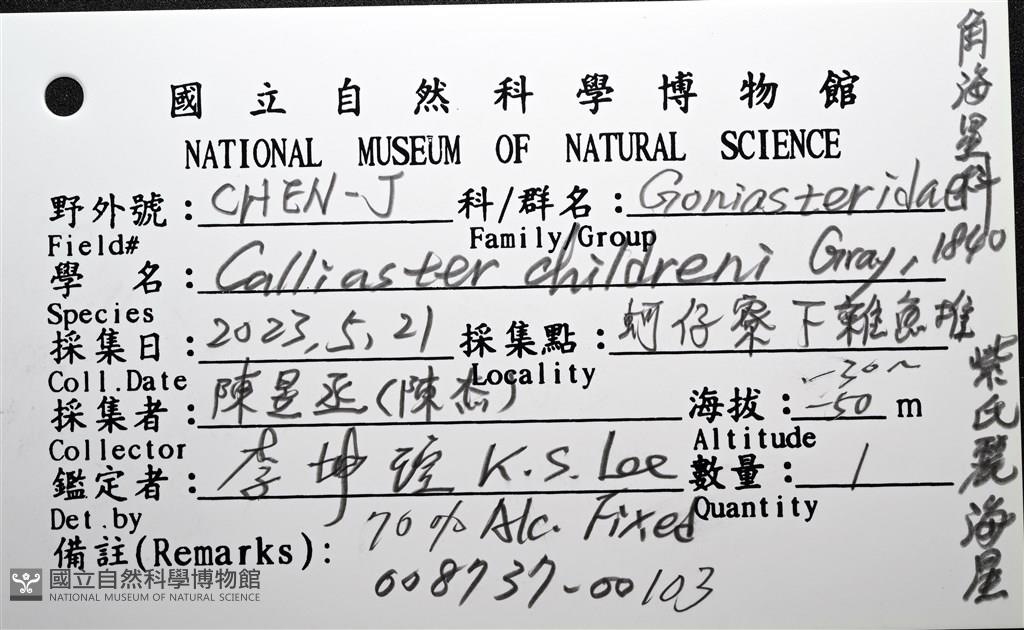 國立自然科學博物館
NATIONAL MUSEUM OF NATURAL SCIENCE
野外號：CHEN-J 科/群名：Goniasteridae
Field# Family/Group
角海星科
學 名：Calliaster childreni Gray, 1840
Species
採集日：2023.5.21 採集點：蚵仔寮下雜魚堆
Coll.Date Locality
採集者：陳昱丞(陳杰) 海拔：-30~-50 m
Collector Altitude
鑑定者：李坤瑄 K.S. Lee 數量：1
Det.by Quantity
紫氏麗海星
備註(Remarks)：70% Alc. Fixed
008737-00103
國立自然科學博物館
NATIONAL MUSEUM OF NATURAL SCIENCE